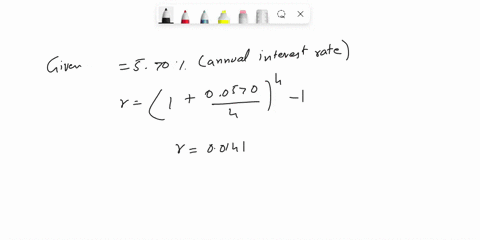 Given = 5.70% (annual interest rate)
r = (1 + 0.0570/4)^4 - 1
r = 0.0141